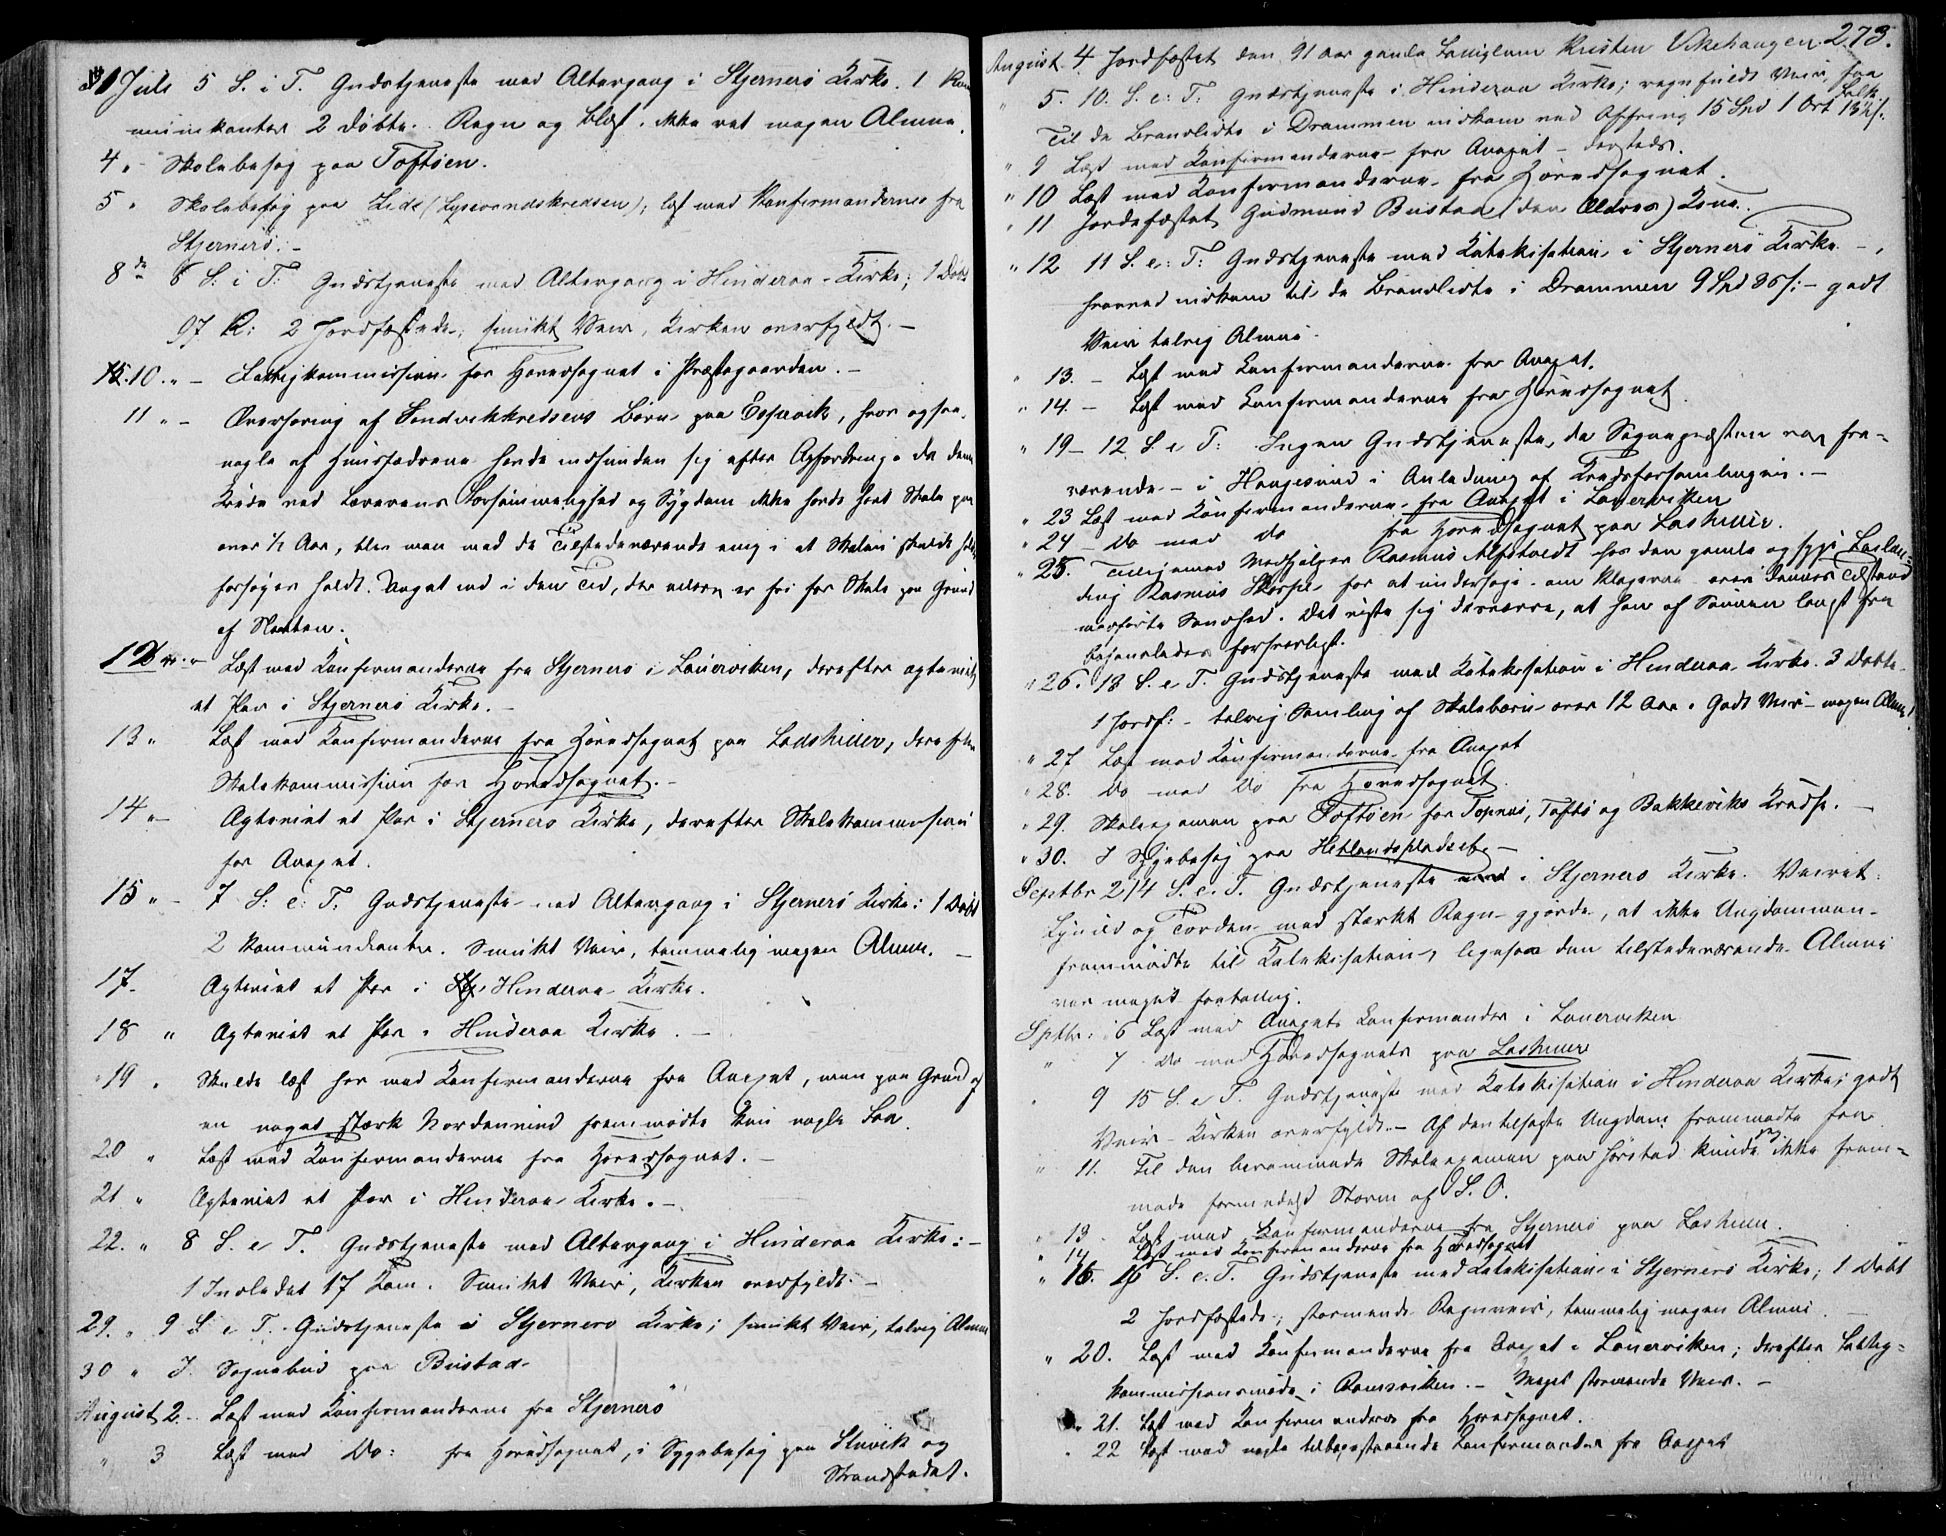 1 Juli 5 S. i T. Gudstjeneste med Altergang i Stjernerö Kirke. 1 Kom
munikanter 2 döbte. Regn og blæst. ikke ret megen Almue.
4 " Skolebesög paa Toftöen.
5 " Skolebesög paa Lide (Lysevandskredsen), læst med Konfirmanderne fra
Stjernerö. -
8de 6 S. i T: Gudstjeneste med Altergang i Hinderaa Kirke; 1 Döbt
97 K: 2 Jordfæstede, smukt Veir, Kirken overfyldt. -
10. " - Fattigkommission for Hovedsognet i Præstegaarden. -
11 " - Overhöring af Sandvikkredsens Börn paa Espevik, hvor ogsaa
nogle af Huusfædrene havde indfunden sig efter Opfordring. Da denne
Kreds ved Lærerens Forsömmelighed og Sygdom ikke havde havt Skole paa
over 1/2 Aar, blev man med de Tilstedeværende enig i at Skolen skulde
forsöges holdt. Noget ind i den Tid, der ellers er fri for Skole paa Grund
af Slaatten.
12 " - Læst med Konfirmanderne fra Stjernerö i Lauerviken, derefter ægteviet
et Par i Stjernerö Kirke. -
13 " Læst med Konfirmanderne fra Hovedsognet paa Ladshuus, derefter
Skolekommission for Hovedsognet. -
14 " - Ægteviet et Par i Stjernerö Kirke, derefter Skolekommission
for Anexet.
15 " - 7 S. e: T. Gudstjeneste med Altergang i Stjernerö Kirke: 1 Döbt
2 Kommunikanter. Smukt Veir, temmelig megen Almue. -
17. Ægteviet et Par i Hinderaa Kirke.
18 " Ægteviet et Par i Hinderaa Kirke. -
19 " Skulde læst her med Konfirmanderne fra Anexet, men paa Grund af
en noget stærk Nordenvind fremmödte kun nogle Faa.
20 " Læst med Konfirmanderne fra Hovedsognet. -
21 " Ægteviet et Par i Hinderaa Kirke. -
22. " 8 S. e T. Gudstjeneste med Altergang i Hinderaa Kirke: -
1 Introdet 17 Kom. Smukt Veir, Kirken overfyldt. -
29. " 9 S. e T. Gudstjeneste i Stjernerö Kirke; smukt Veir, talrig Almue
30 " I Sognebud paa Bustad
August 2. - Læst med Konfirmanderne fra Stjernerö
" 3 Læst med Do: fra Hovedsognet, i Sygebesög paa Sluvik og
Strandstedet.
273.
August 4 Jordfæstet den 91 Aar gamle Fattiglem Kristen Vikehaugen.
" 5. 10. S. e: T: Gudstjeneste i Hinderaa Kirke; regnfuldt Veir, faa
Folk
Til de Brandlidte i Drammen indkom ved Offring 15 Spd 1 Ort 13 1/2 s.
" 9 Læst med Konfirmanderne fra Anexet - dersteds.
" 10 Læst med Konfirmanderne fra Hovedsognet.
" 11 Jordfæstet Gudmund Bustad (den Ældres) Kone.
" 12 11 S. e: T: Gudstjeneste med Katekisation i Stjernerö Kirke -
hvorved indkom til de Brandlidte i Drammen 9 Spd 86 s: - godt
Veir talrig Almue.
" 13. - Læst med Konfirmanderne fra Anexet.
" 14. - Læst med Konfirmanderne fra Hovedsognet.
" 19 - 12 S. e T: Ingen Gudstjeneste, da Sognepræsten var fra-
værende - i Haugesund i Anledning af Kredsforsamlingen. -
" 23 Læst med Konfirmanderne fra Anexet i Lauerviken
" 24 - Do med do fra Hovedsognet paa Lashuus.
" 25. Tilligemed Medhjelper Rasmus Alfstvedt hos den gamle og syge
Rasmus for at undersöge om Klagerne over dennes Tilstand
medförte Sandhed. Det viste sig desværre, at han af Sönnen langt fra
behandledes forsvarligt.
" 26. 13 S. e T. Gudstjeneste med Katekisation i Hinderaa Kirke. 3 Döbte
1 Jordf: - talrig Samling af Skolebörn over 12 Aar. Godt Veir - megen Almue
" 27 Læst med Konfirmanderne fra Anexet
" 28. Do med Do fra Hovedsognet.
" 29. Skoleexamen paa Toftöen for Topnes, Toftö og Bakkeviks Kredse. -
" 30. I Sygebesög paa Hetlandspladset -
Septbr 2 14 S. e. T. Gudstjeneste i Stjernerö Kirke. Veiret:
Lynild og Torden med stærkt Regn gjorde, at ikke Ungdommen
fremmödte til Katekisation, ligesaa den tilstedeværende Almue
var meget faatallig.
Septbr: 6 Læst med Anexets Konfirmander i Lauerviken
" 7 do med Hovedsognets paa Lashuus
" 9 15 S. e T. Gudstjeneste med Katekisation i Hinderaa Kirke; godt
Veir - Kirken overfyldt. - Af den tilsagte Ungdom fremmödte faa
" 11. Til den berammede Skoleexamen paa Hörstad kunde jeg ikke frem-
möde formedelst Storm af S. O.
" 13 - Læst med Konfirmanderne fra Stjernerö paa Lashuus.
" 14 Læst med Konfirmanderne fra Hovedsognet
" 16. 16 S. e. T. Gudstjeneste med Katekisation i Stjernerö Kirke; 1 Döbt
2 Jordfæstede; stormende Regnveir, temmelig megen Almue. -
" 20. Læst med Konfirmanderne fra Anexet i Lauerviken; derefter Fattig-
kommissionsmöde i Ramsviken. - Meget stormende Veir. -
" 21. Læst med Konfirmanderne fra Hovedsognet.
" 22 Læst med nogle tilbagestaaende Konfirmander fra Anexet